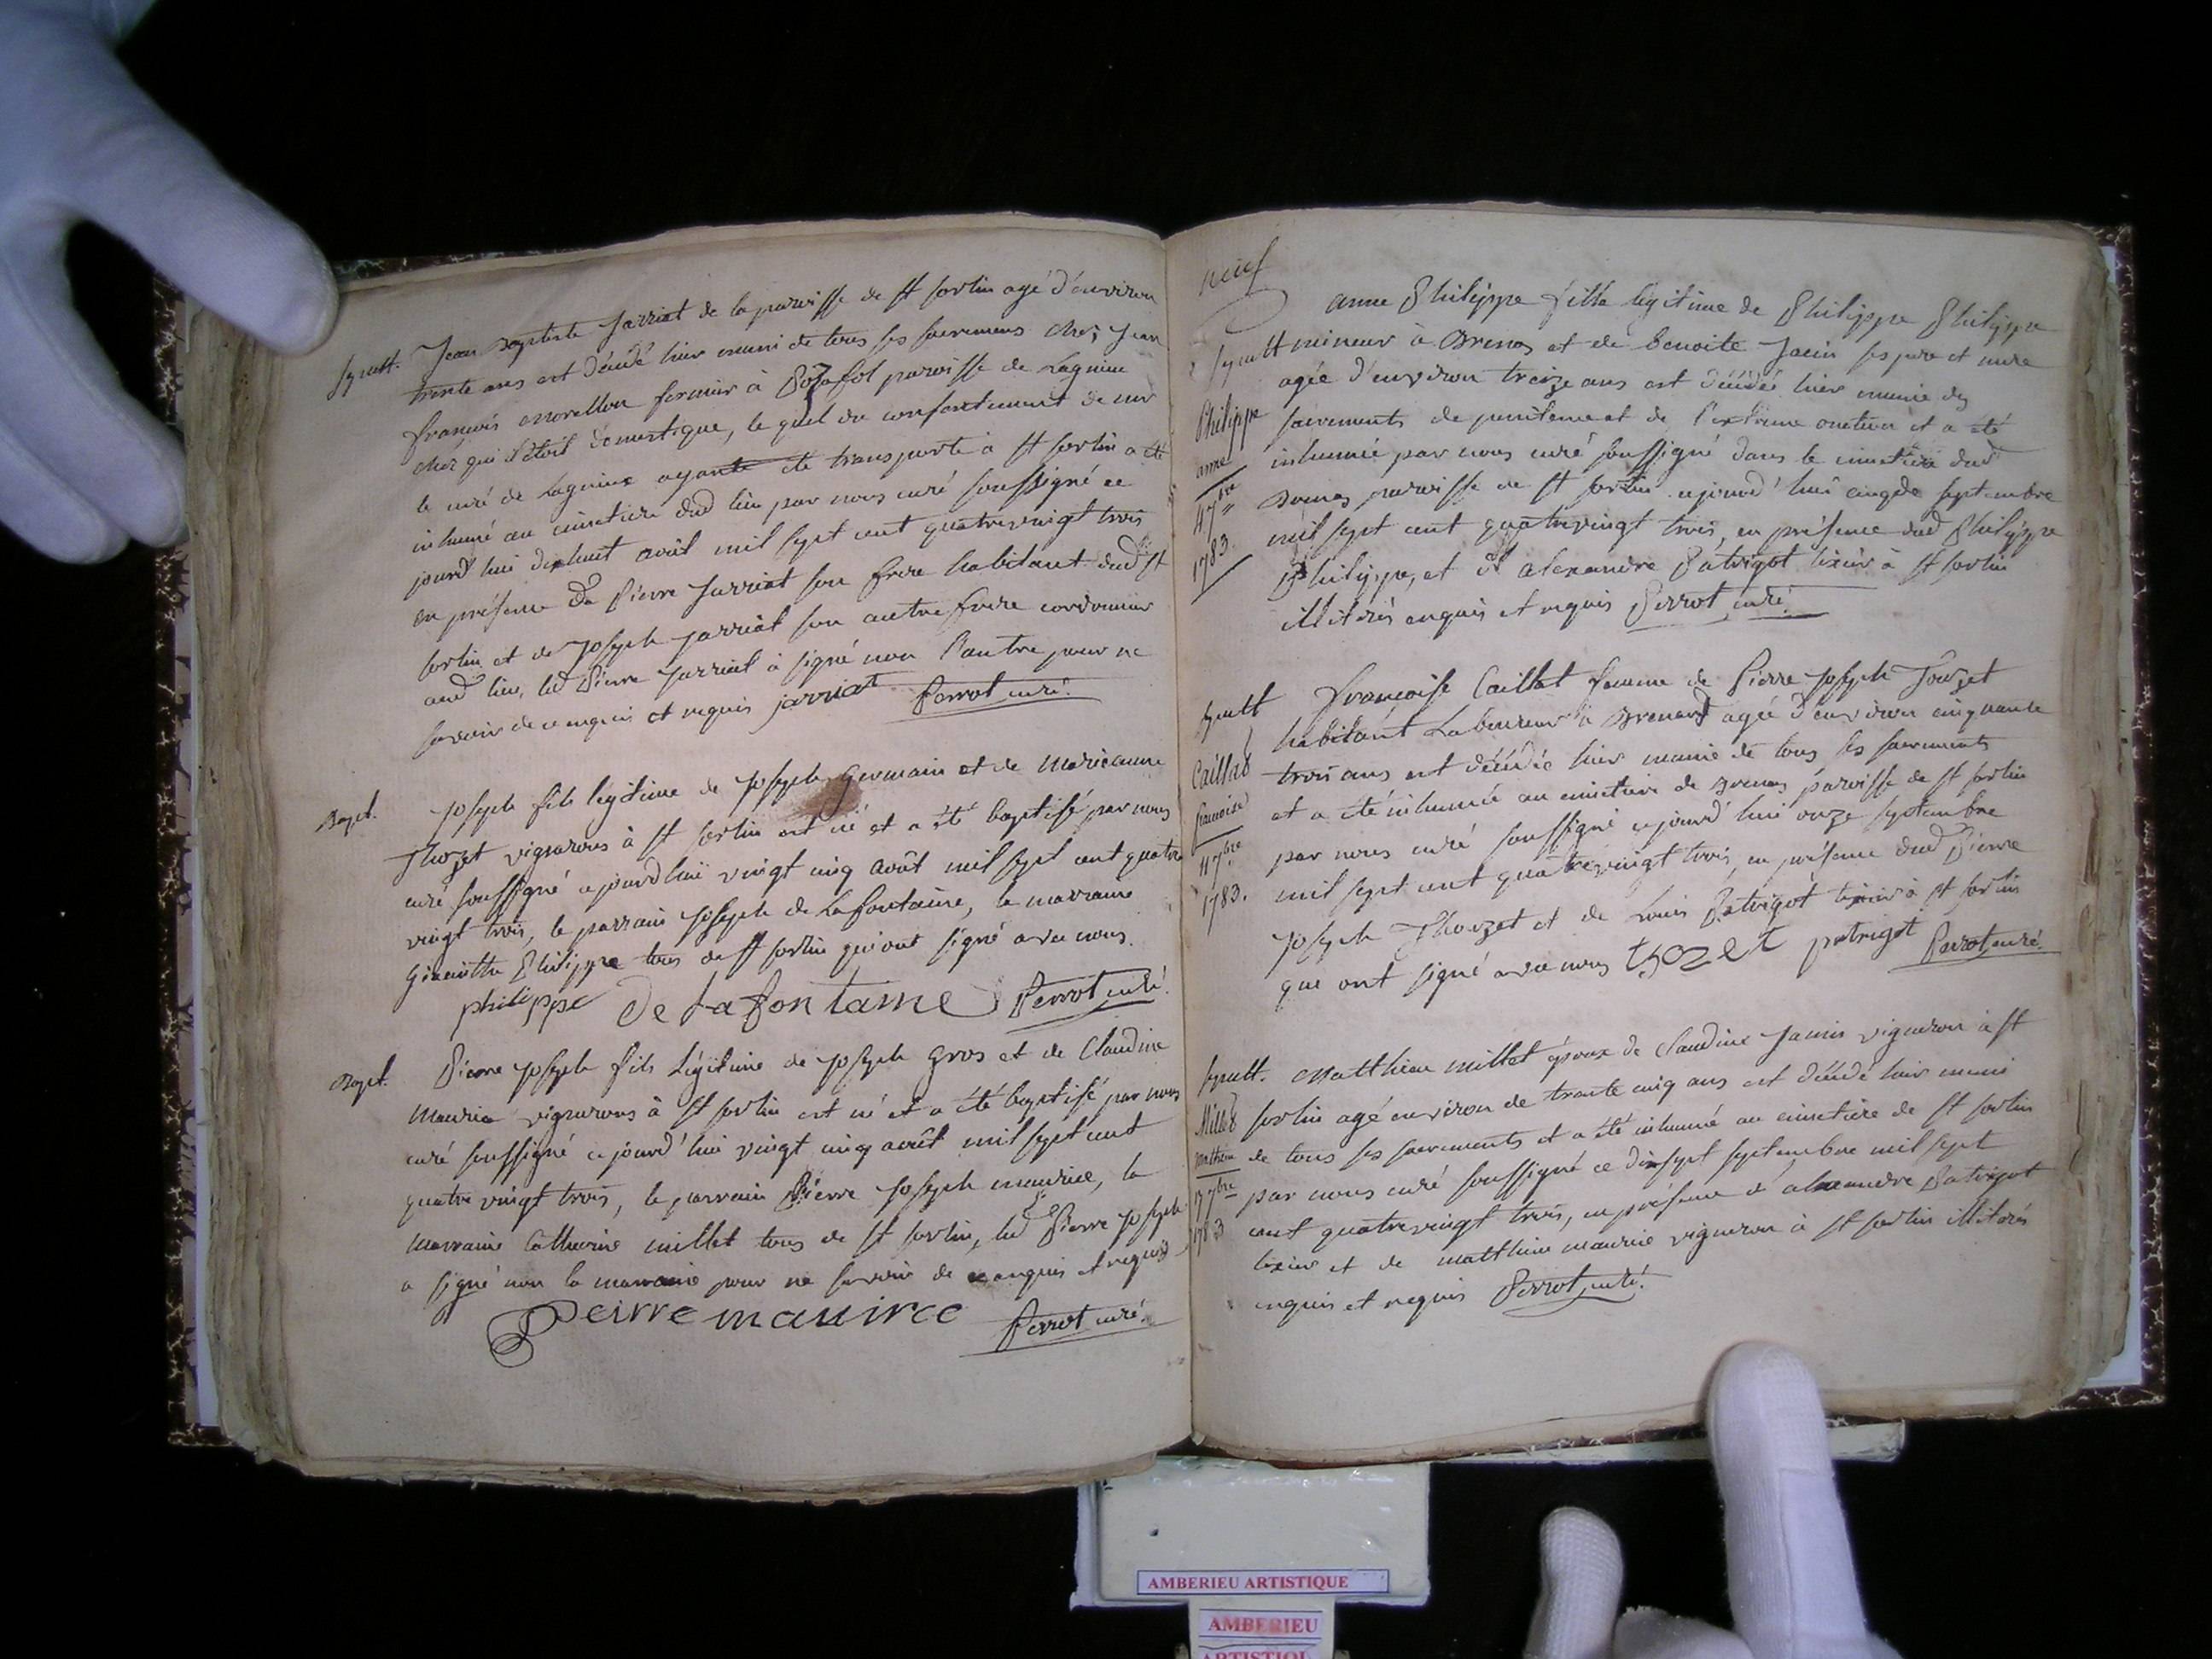 sepult. Jean Baptiste Jarriat de la paroisse de st sorlin agé d'environ
trente ans est décédé hier muni de tous ses sacremens chez Jean
francois morellon fermier à Pozafol paroisse de Lagnieu
chéz qui il étoit domestique, le quel du consentement de mr
le curé de Lagnieu ayant été transporté à st sorlin a été
inhumé au cimetiere dud lieu par nous curé soussigné ce
jourd'hui dixhuit avril mil sept cent quatrevingt trois
en présence de Pierre Jarriat son frere habitant dud st
sorlin et de Joseph Jarriat son autre frere cordonnier
aud lieu, led Pierre Jarriat à signé non l'autre pour ne
savoir de ce enquis et requis jarriat Perrot curé.
Bapt. Joseph fils légitime de Joseph Germain et de marieanne
Thozet vignerons à st sorlin est né et a été baptisé par nous
curé soussigné cejourd'hui vingt cinq août mil sept cent quatre
vingt trois, le parrain Joseph de Lafontaine, la marraine
Philippe tous de st sorlin qui ont signé avec nous.
philippe De Lafontaine Perrot curé.
Bapt. Pierre Joseph fils Légitime de Joseph Gros et de Claudine
Maurice vignerons à st sorlin est né et a été baptisé par nous
curé soussigné cejourd'hui vingt cinq août mil sept cent
quatre vingt trois, le parrain Pierre Joseph maurice, la
marraine Catherine millet tous de st sorlin, led Pierre Joseph
a signé non la marraine pour ne savoir de ce enquis et requis
Peirre mauirce Perrot curé.
neuf
anne Philippe fille légitime de Philippe Philippe
sepult mineur à Brenas et de benoite Janin ses pere et mere
agée d'environ treize ans est décédée hier munie des
Philippe sacrements de penitence et de l'extrême onction et a été
anne inhumée par nous curé soussigné dans le cimetiere dud
Brenas paroisse de st sorlin cejourd'hui cinq de septembre
1783. mil sept cent quatrevingt trois, en présence dud Philippe
Philippe, et d'alexandre Patrigot tixier à st sorlin
illiterés enquis et requis Perrot curé.
sepult Françoise Caillat femme de Pierre Joseph Touzet
habitant Laboureur à Brenas agée d'environ cinquante
Caillat trois ans est décédée hier munie de tous ses sacrements
francoise et a été inhumée au cimetiere de Brenas paroisse de st sorlin
par nous curé soussigné cejourd'hui onze septembre
1783. mil sept cent quatrevingt trois, en présence dud Pierre
Joseph Thouzet et de Louis Patrigot tixier à st sorlin
que ont signé avec nous thozet patrigot Perrot curé.
sepult. Matthieu millet époux de Claudine Janin vigneron à st
Millet sorlin agé environ de trente cinq ans est décédé hier muni
mathieu de tous ses sacrements et a été inhumé au cimetiere de st sorlin
17 7bre par nous curé soussigné ce dixsept septembre mil sept
1783 cent quatrevingt trois, en présence d'alexandre Patrigot
tixier et de matthieu maurice vigneron à st sorlin illiterés
enquis et requis Perrot curé.
AMBERIEU ARTISTIQUE
AMBERIEU
ARTISTIQUE